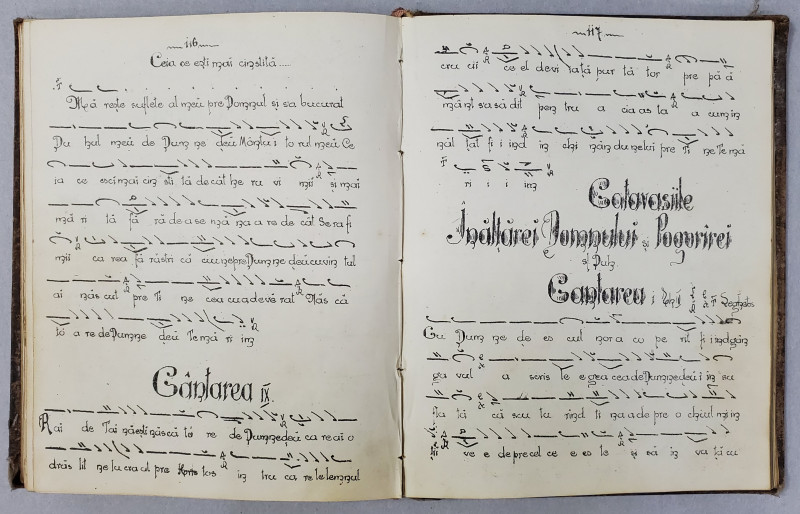 116.
Ceia ce ești mai cinstită.....
Mă rește suflete al meu pre Domnul și s'a bucurat
Du hul meu de Dum ne deu Mântu i to rul meu Ce
ia ce esci mai cin sti tă de cât he ru vi mii și mai
mă ri tă fă ră de a se mă na a re de cât Se ra fi
mii ca rea fă ră stri că cu ne pre Dum ne deu cuvin tul
ai năs cut pre Ti ne cea cu a de vă rat Năs că
tó a re de Dumne deu Te mă ri im
Cântarea IX.
Rai de Tai nă ești năs că tó re de Dumnedeu ca re ai o
drăs lit ne lu cra ul pre Hris tos in tru ca re le lemnul
117.
cru cii ce el de vi ță ță pur tă tor pre pă
mânt s'a să dit pen tru a cia as ta a cum în
năl țat fi i ind în chi nân du ne lui pre Ti ne Te mă
ri i i im
Catavasiile
Înălțărei Domnului și Pogorirei
st. Duh
Cantarea I
Cu Dum ne de es cul nor a co pe rit fi ind gân
ga vul a scris le e gea cea de Dumnedeu i in su
fla tă că scu tu rând ti na a de pre o chiul min
ței ve e de pre cel ce e es te și să în va ță cu